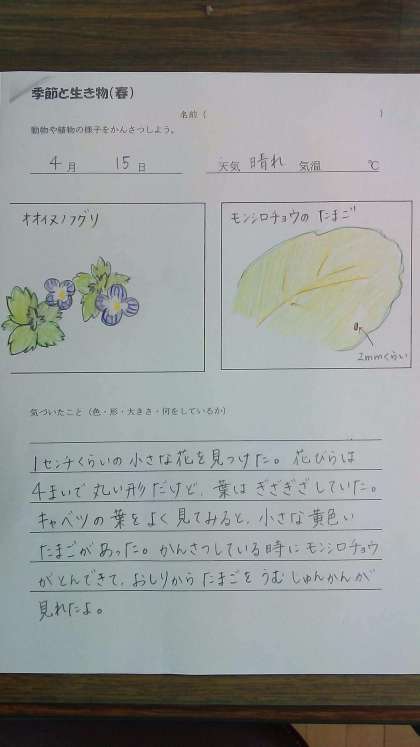 季節と生き物(春)
名前( )
動物や植物の様子をかんさつしよう。
4月 15日 天気 晴れ 気温 ℃
オオイヌノフグリ
モンシロチョウの たまご
2mmくらい
気づいたこと(色・形・大きさ・何をしているか)
1センチくらいの小さな花を見つけた。花びらは
4まいで丸い形だけど、葉はぎざぎざしていた。
キャベツの葉をよく見てみると、小さな黄色い
たまごがあった。かんさつしている時にモンシロチョウ
がとんできて、おしりからたまごをうむしゅんかんが
見れたよ。